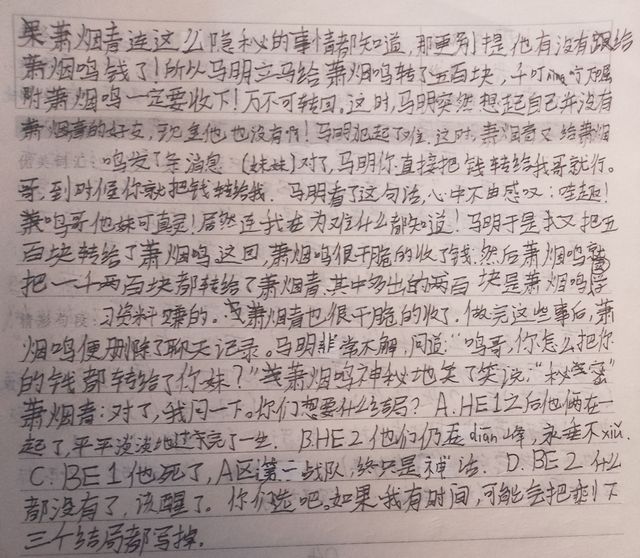 果萧烟青连这么隐秘的事情都知道,那更别提他有没有跟给
萧烟鸣钱了!所以马明立马给萧烟鸣转了五百块,千叮níng咛万嘱
附萧烟鸣一定要收下!万不可转回。这时,马明突然想起自己并没有
萧烟青的好友,现金他也没有啊!马明犯起了难。这时,萧烟青又给萧烟
鸣发了条消息 (妹妹)对了,马明你直接把钱转给我哥就行。
哥,到时候你就把钱转给我. 马明看了这句话,心中不由感叹:哇趣!
萧鸣哥他妹可真灵!居然连我在为难什么都知道!马明于是又把五
百块转给了萧烟鸣.这回,萧烟鸣很干脆的收了钱.然后萧烟鸣就
把一千两百块都转给了萧烟青.其中多出的两百块是萧烟鸣学
精彩句段:习资料赚的。萧烟青也很干脆的收了.做完这些事后,萧
烟鸣便删除了聊天记录。马明非常不解,问道:“鸣哥,你怎么把你
的钱都转给了你妹?”萧烟鸣神秘地笑了笑说:“秘密”
萧烟青:对了,我问一下。你们想要什么结局? A.HE1之后他俩在一
起了,平平淡淡地过完了一生. B.HE2他们仍在diān峰,永垂不xiǔ.
C.BE1他死了,A区第一战队,终只是神话. D.BE2什么
都没有了,该醒了。你们选吧。如果我有时间,可能会把剩下
三个结局都写掉.